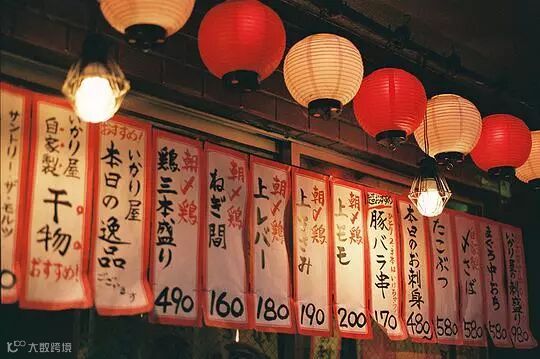 サントリー ザ・モルツ
いかり屋
自家製
干物
おすすめ!
おすすめ!
いかり屋
本日の逸品
ございます
朝〆鶏
鶏三本盛り
490
朝〆鶏
ねぎ間
160
朝〆鶏
上レバー
180
朝〆鶏
上ささみ
190
朝〆鶏
上もも
200
豚バラ串
170
本日のお刺身
480
たこぶつ
580
〆さば
580
まぐろ中おち
580
いかり屋の刺盛り
大数跨境